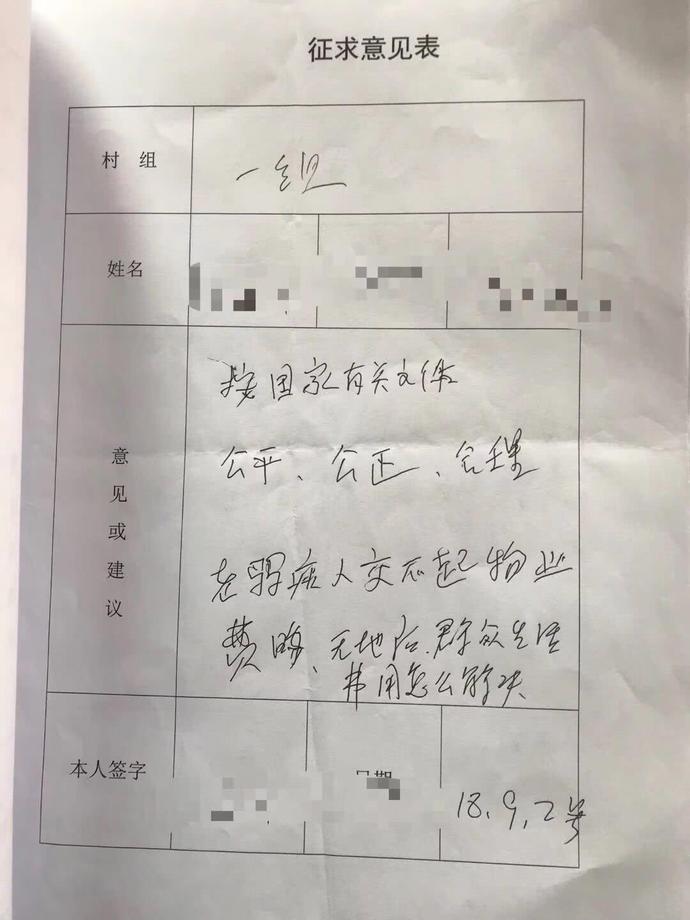 征求意见表
村 组
一组
姓名
意见或建议
按国家有关文件
公平、公正、合理
老弱病人交不起物业
费的、无地后、群众生活
费用怎么解决
本人签字
日期
18、9、2号